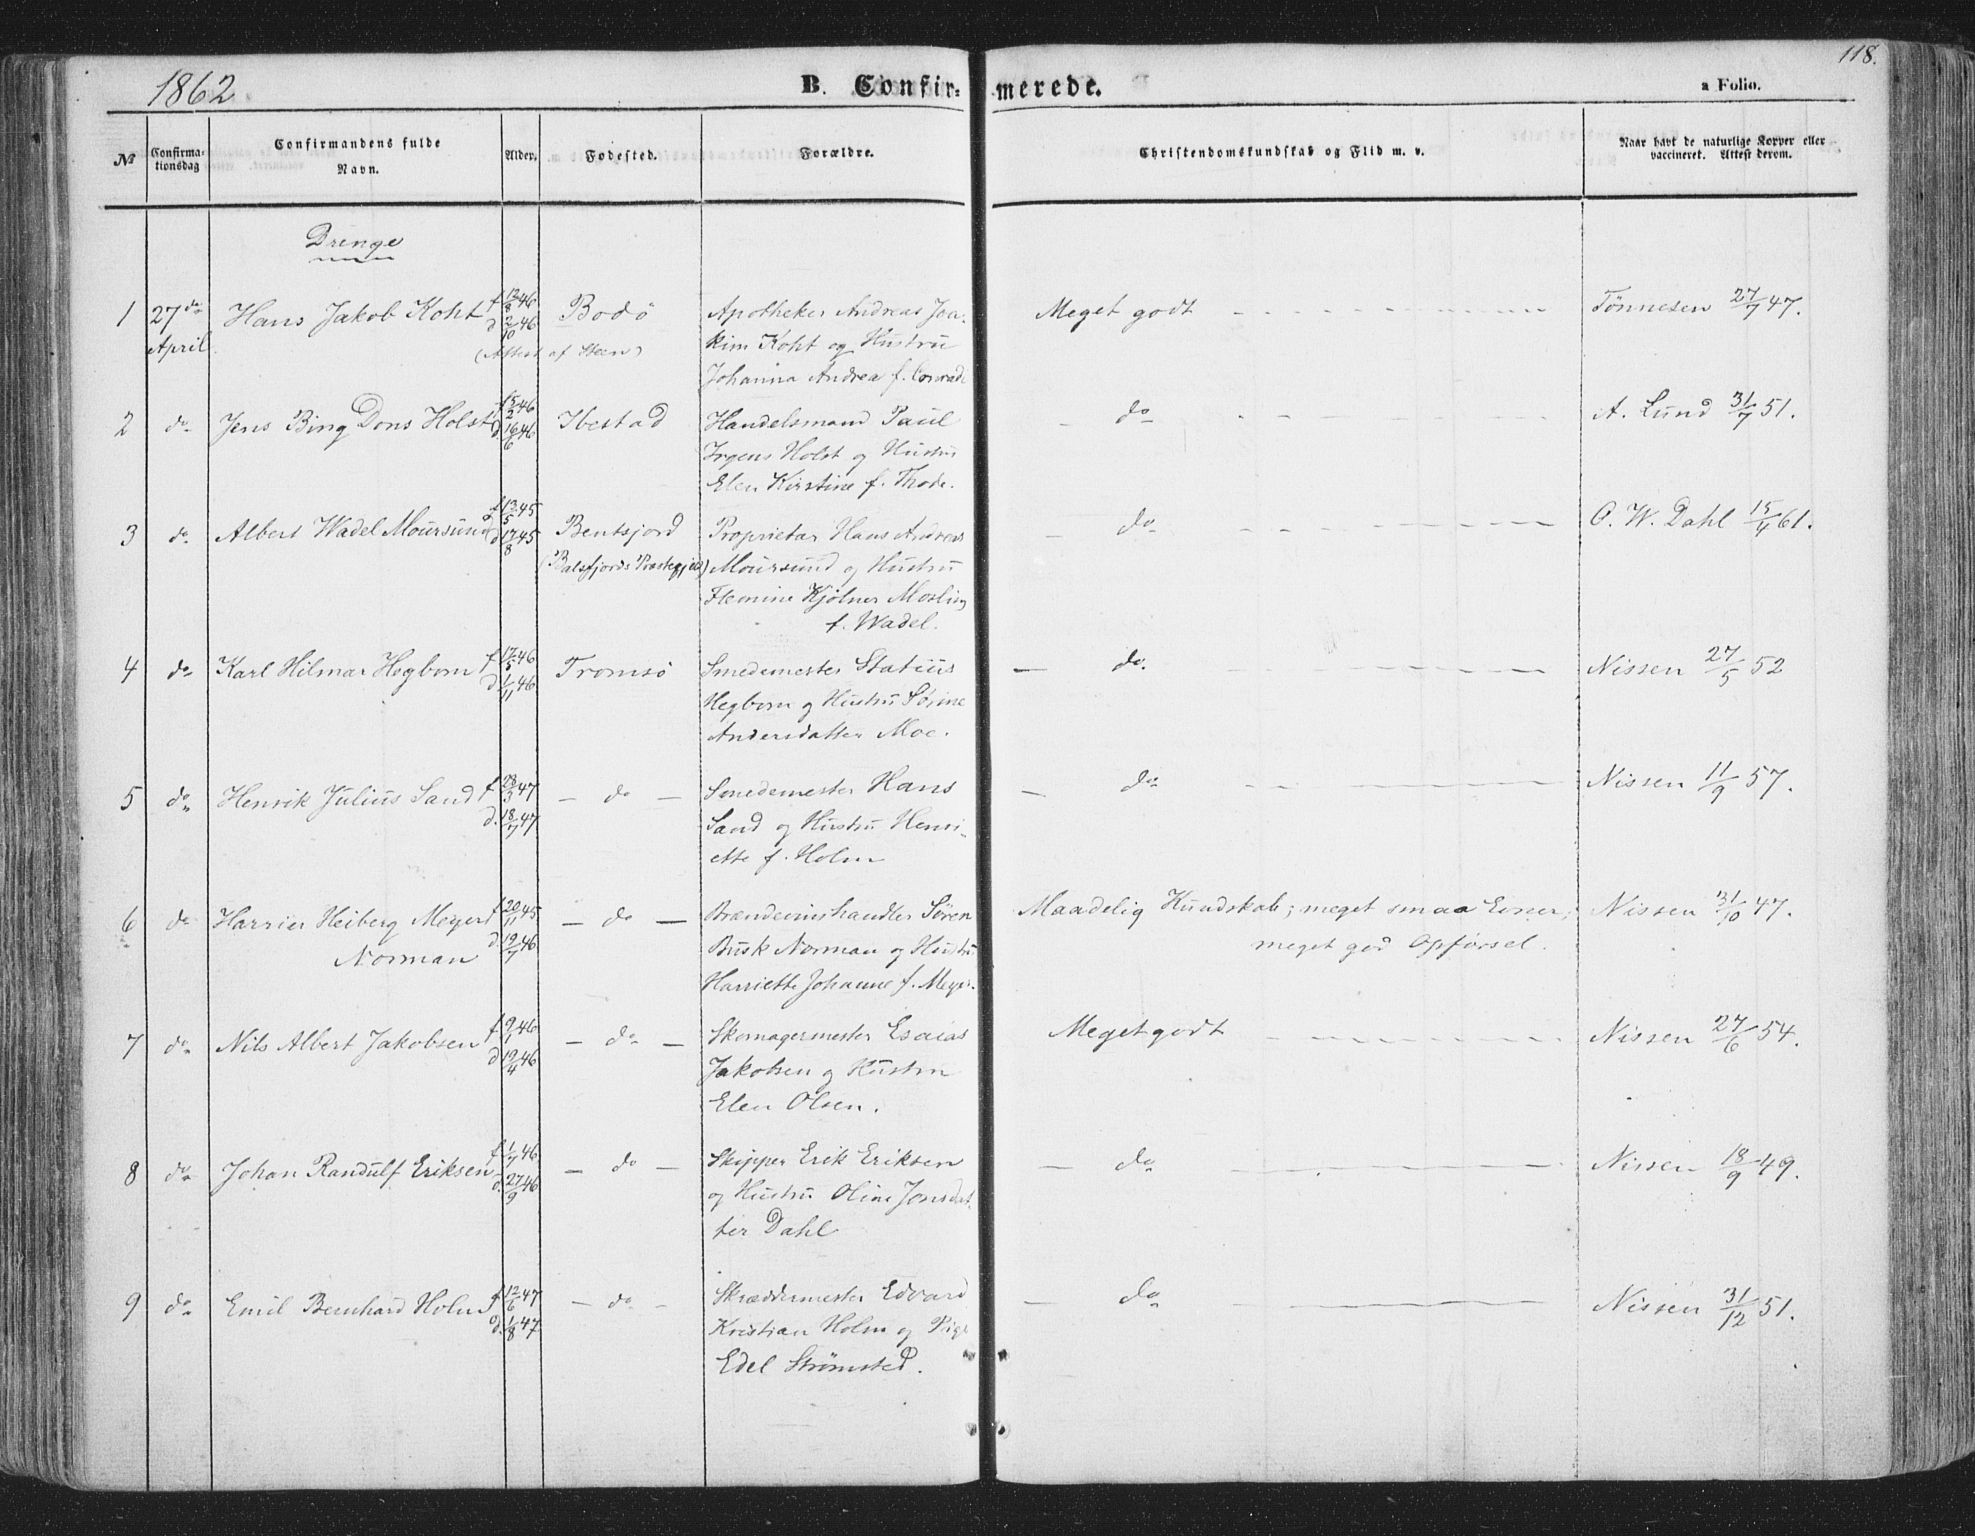 1862
B. Confir=merede.
118.
a Folio.
No
Confirma-
tionsdag
Confirmandens fulde
Navn.
Alder.
Fødested.
Forældre.
Christendomskundskab og Flid m. v.
Naar havt de naturlige Kopper eller
vaccineret. Attest derom.
Drenge
1 27de Hans Jakob Koht f 12/8 46 Bodö Apotheker Andreas Joa- Meget godt Tönnesen 27/7 47.
April. d 2/10 46 kim Koht og Hustru
(Attest af Steen) Johanna Andrea f. Conradi
2 do Jens Bing Dons Holst f 5/2 46 Ibestad Handelsmand Paul do A. Lund 31/7 51.
d. 16/6 46 Irgens Holst og Hustru
Elen Kirstine f. Thode.
3 do Albert Wadel Moursund f 13/5 45 Bentsjord Proprietær Hans Andreas do O. W. Dahl 15/4 61.
d 17/8 45 (Balsfjords Præstegjeld) Moursund og Hustru
Kjölner Mosling
f. Wadel.
4 do Karl Hilmar Hegbom f 17/5 46 Tromsö Smedemester Statius do. Nissen 27/5 52
d 1/11 46 Hegbom og Hustru Sörine
Andersdatter Moe.
5 do Henrik Julius Sand f 28/3 47 - do - Smedemester Hans do Nissen 11/9 57.
d. 18/7 47 Sand og Hustru Henri-
ette f. Holm
6 do Harrier Heiberg Meyer f 20/11 45 - do - Brændeviinshandler Sören Maadelig Kundskab; meget smaa Evner; Nissen 31/10 47.
Norman d. 19/7 46 Busk Norman og Hustru meget god Opförsel.
Harriette Johanne f. Meyer.
7 do Nils Albert Jakobsen f 9/1 46 - do - Skomagermester Esaias Meget godt Nissen 27/6 54.
d 19/4 46 Jakobsen og Hustru
Elen Olsen.
8 do Johan Randulf Eriksen f 1/7 46. - do - Skipper Erik Eriksen do Nissen 18/9 49.
d. 27/9 46 og Hustru Oline Jonsdat-
ter Dahl
9 do Emil Bernhard Holm f 12/6 47 - do - Skræddermester Edvard do Nissen 31/12 51.
d. 1/8 47 Kristian Holm og Pige
Edel Strömsted.